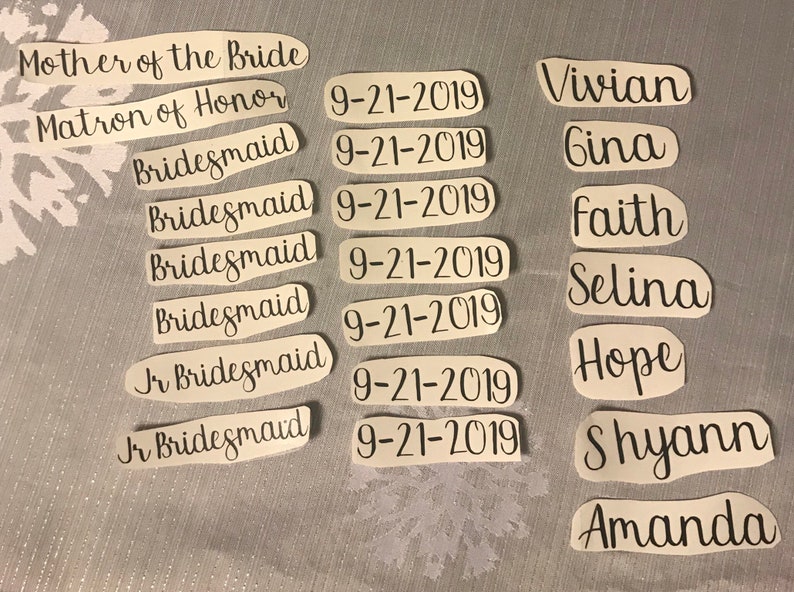 Mother of the Bride
Matron of Honor
Bridesmaid
Bridesmaid
Bridesmaid
Bridesmaid
Jr Bridesmaid
Jr Bridesmaid
9-21-2019
9-21-2019
9-21-2019
9-21-2019
9-21-2019
9-21-2019
9-21-2019
Vivian
Gina
Faith
Selina
Hope
Shyann
Amanda